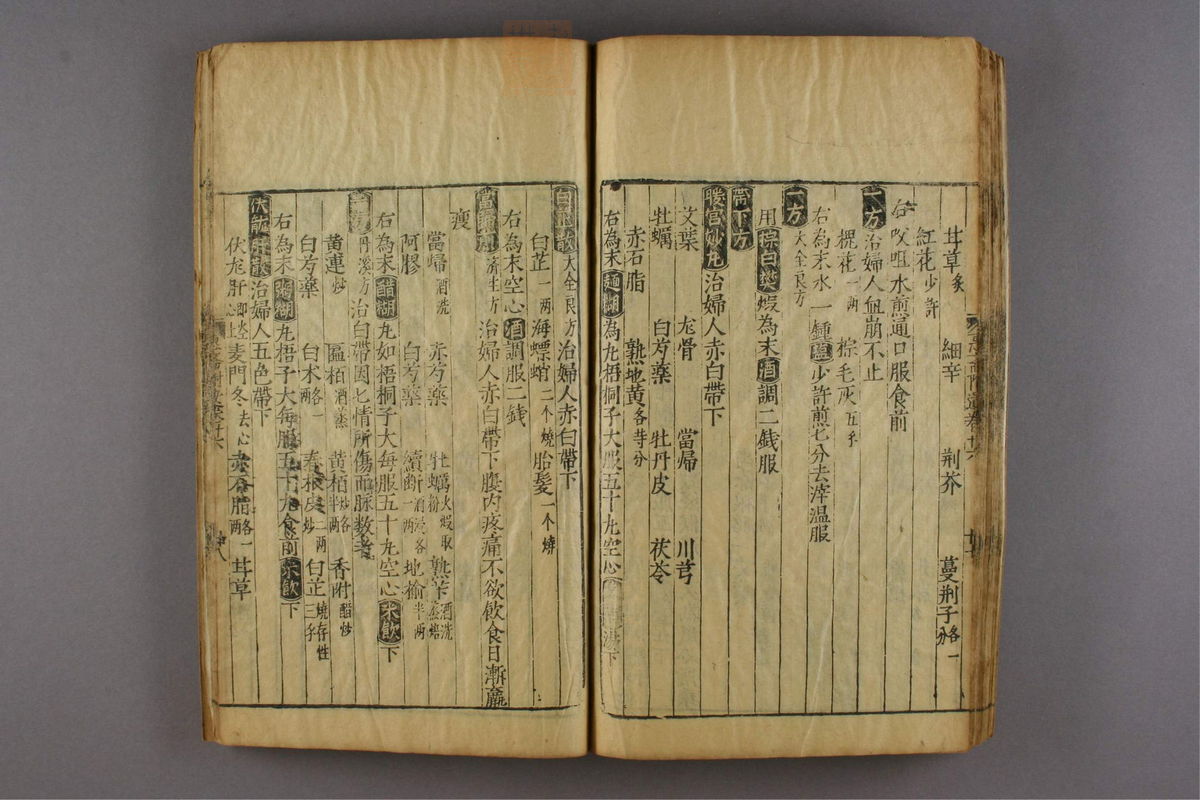 甘草炙 細辛 荆芥 蔓荆子各一分
紅花少許
右㕮咀水煎通口服食前
一方治婦人血崩不止
槐花一兩 棕毛灰五錢
右為末水一鍾鹽少許煎七分去滓温服
一方大全良方
用棕白礬煆為末酒調二錢服
帶下方
暖宫妙丸治婦人赤白帶下
艾葉 龙骨 當帰 川芎
牡蠣 白芍藥 牡丹皮 茯苓
赤石脂 熟地黄各等分
右為末麺糊為丸梧桐子大服五十丸空心 湯下
白芷散大全良方治婦人赤白帶下
白芷一兩 海螵蛸二个燒 胎髪一个燒
右為末空心酒調服二錢
濟生方治婦人赤白帶下腹内疼痛不欲飲食日漸羸
瘦
當帰酒洗 赤芍藥 牡蠣火煆取粉 熟苄酒洗蒸焙
阿膠 白芍藥 續断酒浸各一兩 地榆半兩
右為末醋糊丸如梧桐子大每服五十丸空心米飲下
一方丹溪方治白帶因七情所傷而脉数者
黄連炒 扁栢酒蒸 黄栢炒各半兩 香附醋炒
白芍藥 白术各一兩 春根皮二兩炒 白芷燒存性三錢
右為末粥糊丸梧子大每服五十丸食前米飲下
伏龍肝散治婦人五色帶下
伏龙肝即灶心土 麦門冬去心 赤石脂各一兩 甘草